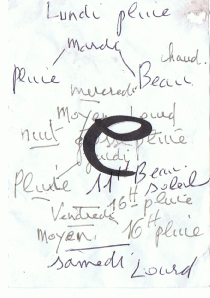 Lundi pluie
mardi
chaud.
pluie
Beau
mercredi
Moyen Lourd
nuit
pluie
jeudi
Pluie
11H Beau
soleil
Vendredi 16H pluie
Moyen. 16H pluie
samedi Lourd